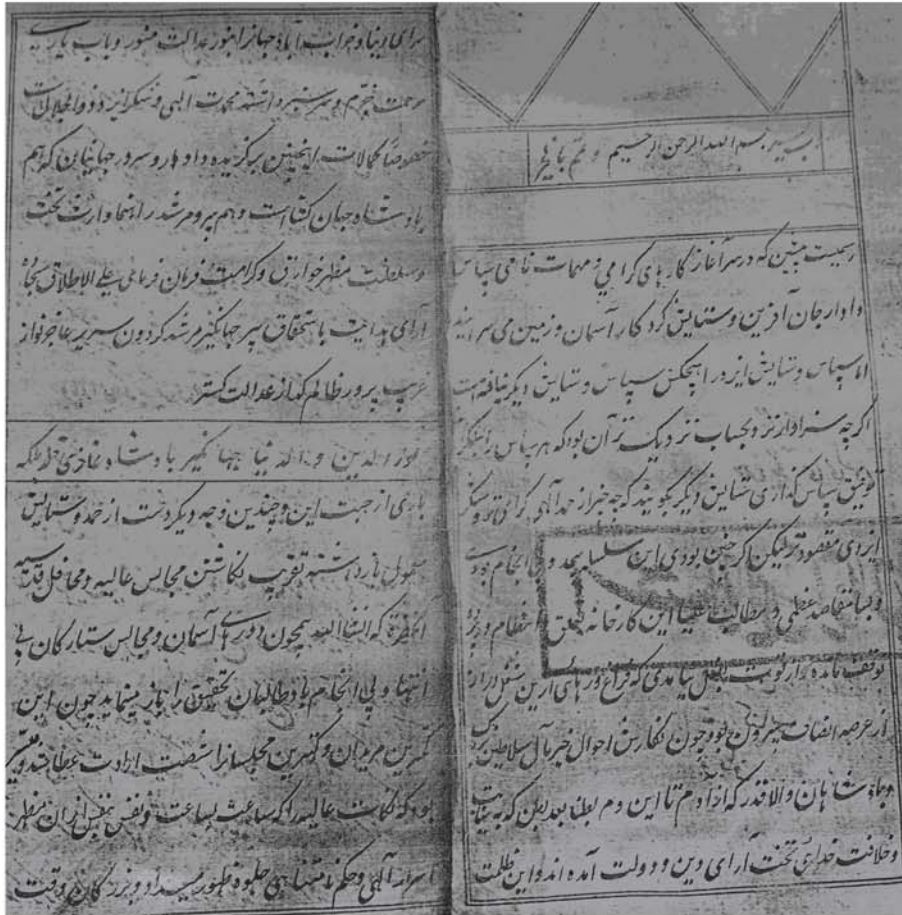 رب یسر بسم الله الرحمن الرحیم و تمم بالخیر
رسمیست مبین که در سر آغاز کارهای گرامی و مهمات نامی سپاس
دادار جان آفرین و ستایش کردکار آسمان و زمین می سرایند
اما سپاس و ستایش ایزد را هیچکس سپاس و ستایش دیگر نیافته است
اگرچه سزاوارتر و بحساب نزدیک تر آن بود که هر سپاس را بشکر
توفیق سپاس گذاری ستایش دیگر بگویند که چه خبر از حمد الهی گرامی تر و شکر
ایزدی مقصود تر لیکن اگر چنین بودی این سلسله بیحد و بی انجام بودی
و بسا مقاصد عظمی و مطالب علیا این کارخانه انتظام و
توقف مانده از قوت بفعل نیامدی که فراغ روزهای ازین شغل دراز
از عرصه انصاف بیرون بود و چون نگارش احوال خیر مآل سلاطین بزرگ
و پادشاهان والا قدر که از آدم تا این دم بطنا بعد بطن که به نیابت
و خلافت خدائی تخت آرای دین و دولت آمده اند و این ظلمت
سرای دنیا و خراب آباد جهانرا بنور عدالت منور و بآب یاری
مرحمت خرم و سرسبز داشته محمدت الهی و شکر ایزد ذوالجلالست
خصوصا کمالات اینچنین برگزیده دادار و سرور جهانیان که هم
پادشاه جهان کشا است و هم پیر و مرشد راهنما وارث تخت
و سلطنت مظهر خوارق و کرامت فرمان فرمای علی الاطلاق سجاده
آرای هدایت باستحقاق سپر جهانگیر مرشد گردون سریر عاجز نواز
غریب پرور ظالم گداز عدالت گستر
نور الدین و الدنیا جهانگیر بادشاه غازی خلد ملکه
باری از جهت این و چندین وجه دیگر دست از حمد و ستایش
معمول باز داشته تقریب نگاشتن مجالس عالیه و محافل قدسیه
آنحضرت که انشاالله همچون دورهای آسمان و مجالس ستارگان بی
انتها و بی انجام باد طالبان تحقیق را باز مینماید چون این
کمترین مریدان و کهترین مخلصانرا شصت ارادت عطا شد و
بود که نکات عالیه را که ساعت بساعت و نفس بنفس از ان مظهر
اسرار الهی و حکم نامتناهی جلوه ظهور میداد و بزرگان وقت